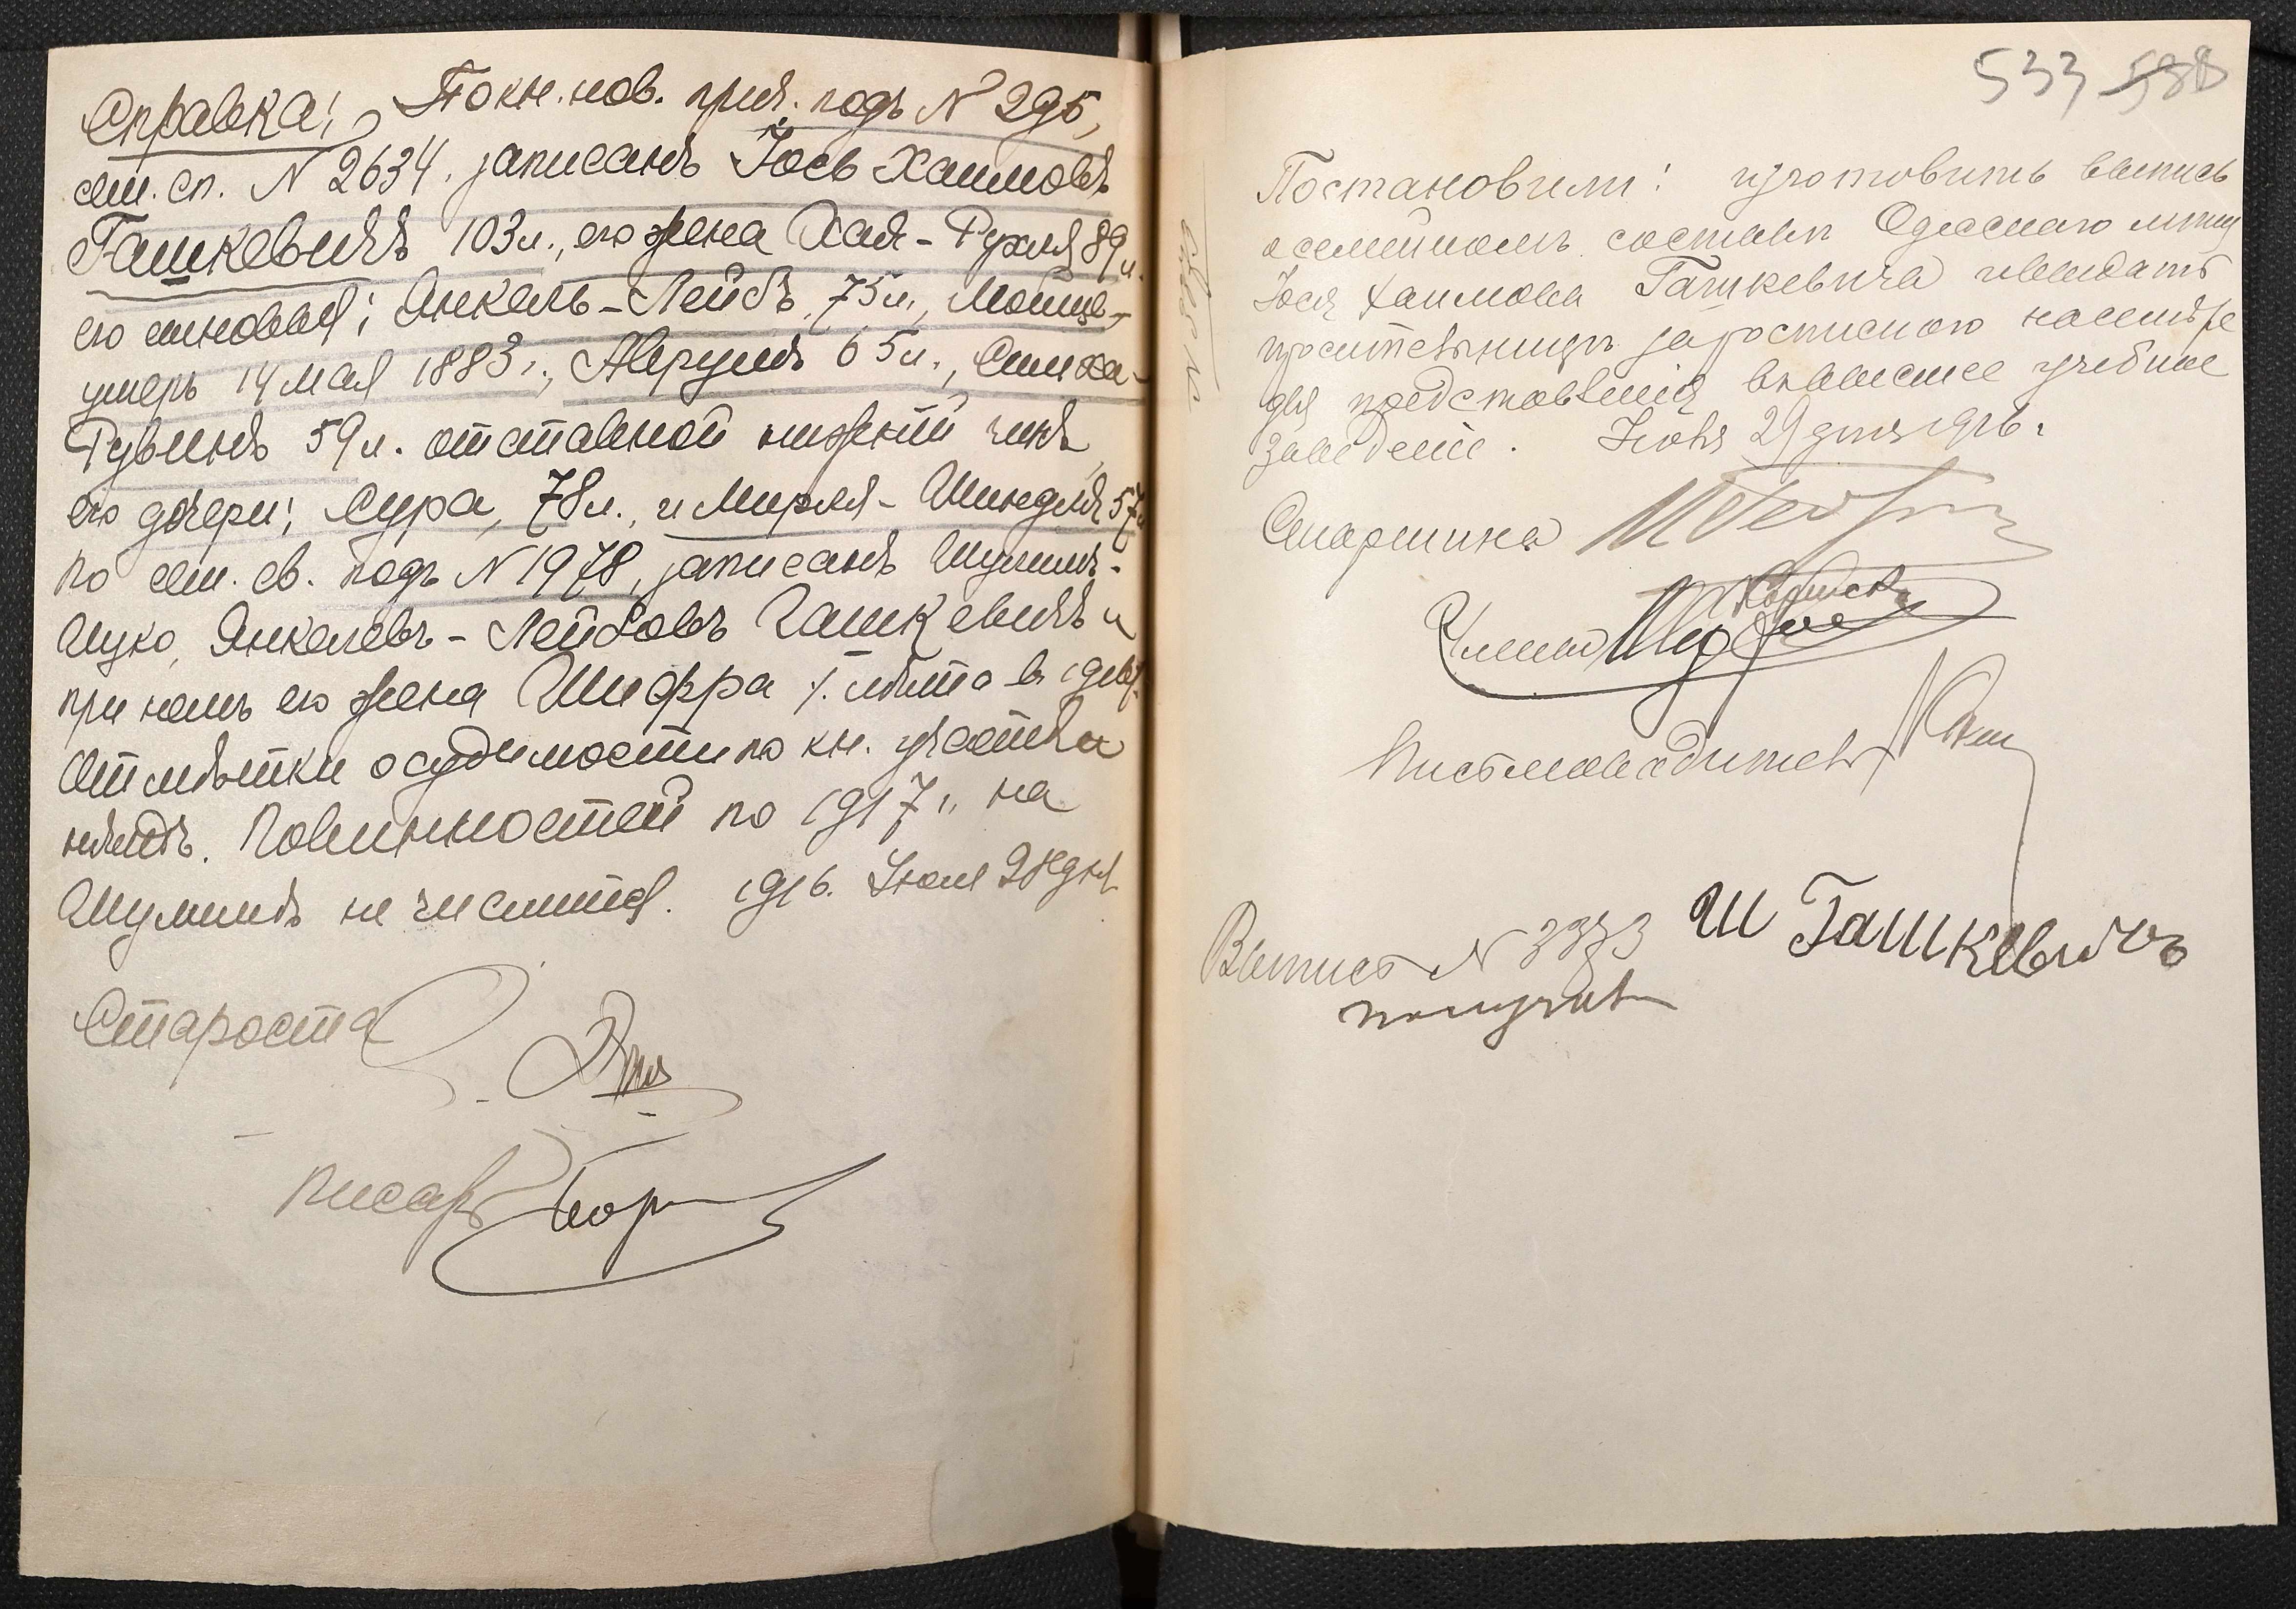 Справка: По кн. нов. прич. подъ N 295,
сем. сп. N 2634. записанъ Іось Хаимовъ
Гашкевичъ 103 л., его жена Хая-Рухля 89 л.
его сыновья: Янкель-Лейбъ, 75 л., Мойше-
умеръ 14 мая 1883 г., Аврумъ 65 л., Симха-
Рувинъ 59 л. отставной нижній чинъ,
его дочери: Сура, 78 л., и Мирля-Шиндля 57 л.
по сем. св. подъ N 1978, записанъ Шулимъ-
Шуко, Янкелевъ-Лейбовъ Гашкевичъ и
при немъ его жена Шифра
Отмѣтки о судимости по кн. участка
нѣтъ. Повинностей по 1917 г. на
Шулимѣ не числится. 1916. Іюля 28 дня
Староста
Писарь
533 588
Постановили: изготовить выпись
о семейномъ составѣ Одесскаго мѣщ
Іося Хаимова Гашкевича и выдать
просительницѣ за роспискою на семъ же
для представленія въ высшее учебное
заведеніе. Іюля 29 дня 1916 г.
Старшина
Члены
Письмоводитель
Выпись N 3333 Ш Гашкевичъ
получилъ